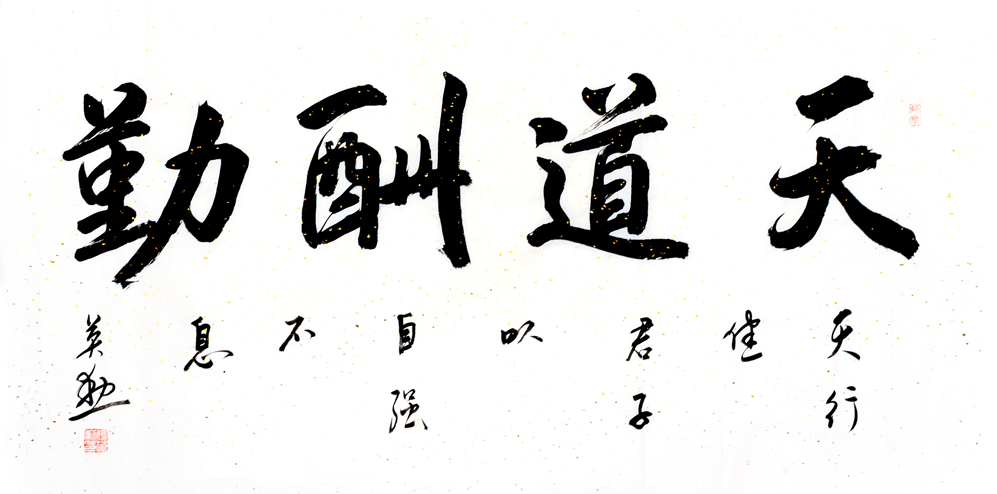 天道酬勤
天行健君子以自强不息